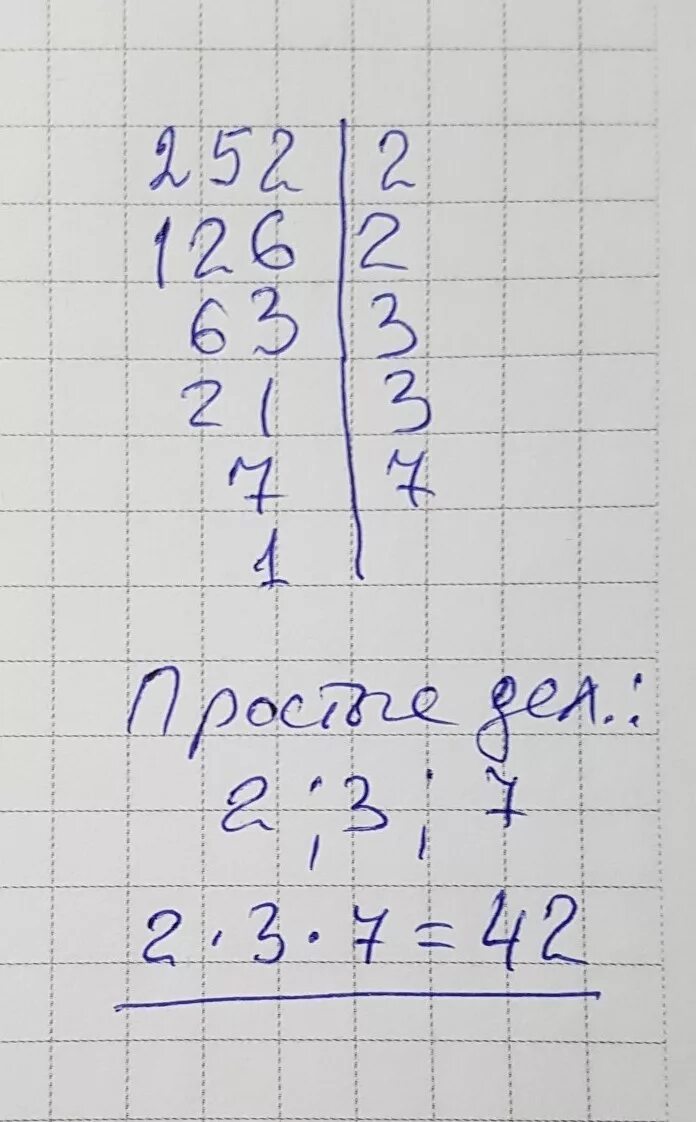 252 | 2
126 | 2
63 | 3
21 | 3
7 | 7
1 |
Простые дел.:
2 ; 3 ; 7
2 · 3 · 7 = 42